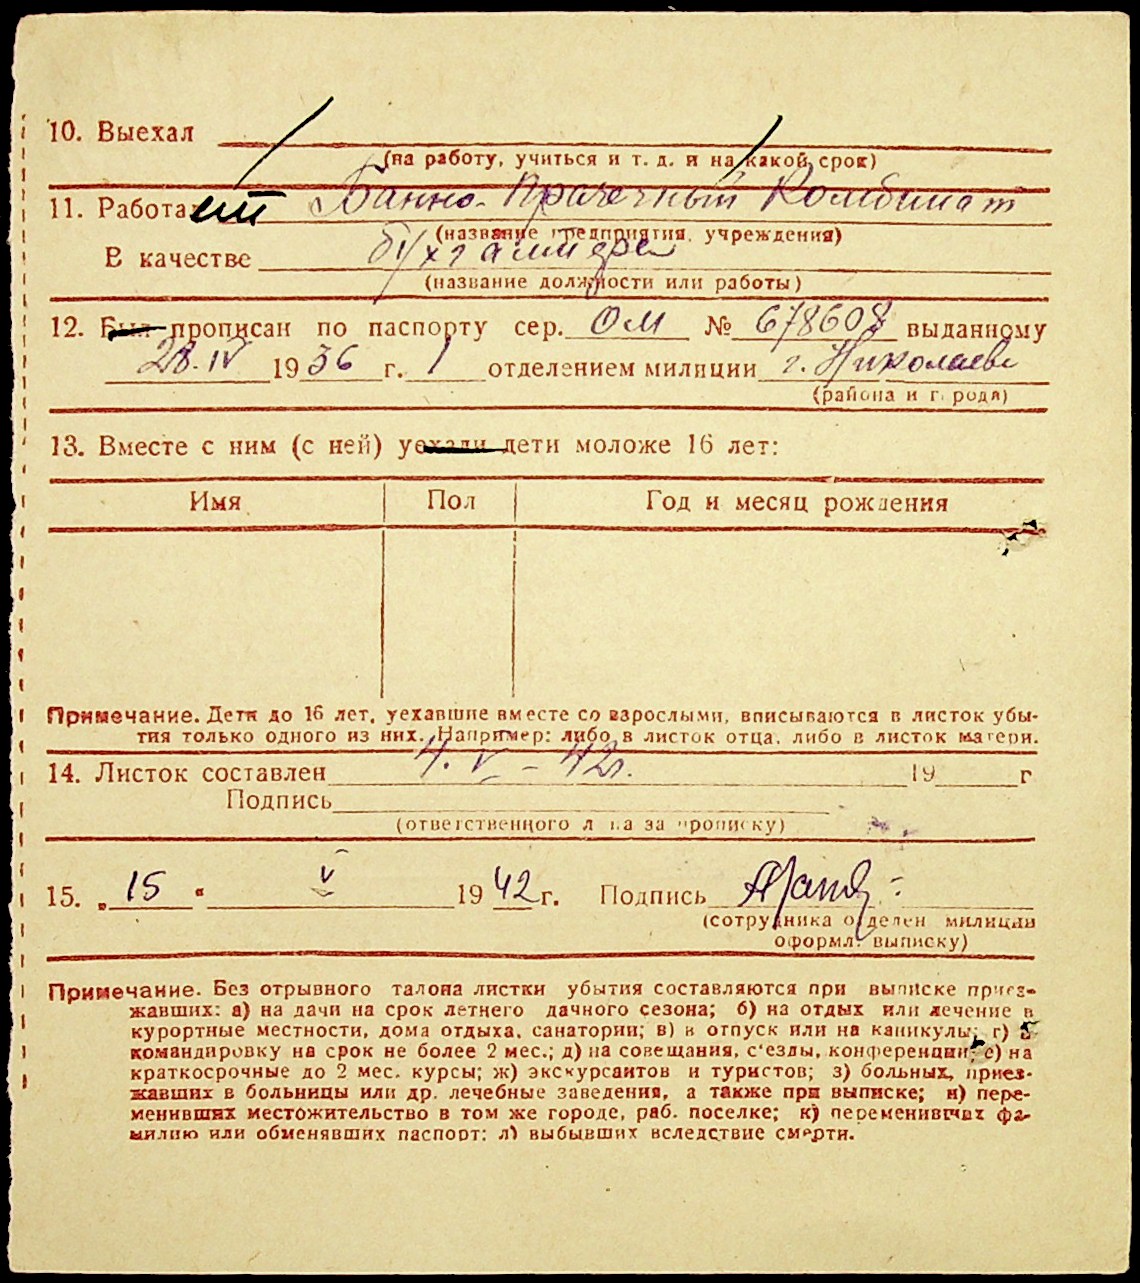 10. Выехал
(на работу, учиться и т. д. и на какой срок)
11. Работает Банно-Прачечный Комбинат
(название предприятия, учреждения)
В качестве бухгалтера
(название должности или работы)
12. Был прописан по паспорту сер. ОМ № 678608 выданному
28.IV 1936 г. 1 отделением милиции г. Николаева
(района и города)
13. Вместе с ним (с ней) уехали дети моложе 16 лет:
Имя Пол Год и месяц рождения
Примечание. Дети до 16 лет, уехавшие вместе со взрослыми, вписываются в листок убы-
тия только одного из них. Например: либо в листок отца, либо в листок матери.
14. Листок составлен 4. V – 42г. 19 г
Подпись
(ответственного лица за прописку)
15. „15“ V 1942 г. Подпись
(сотрудника отделен милиции
оформл. выписку)
Примечание. Без отрывного талона листки убытия составляются при выписке приез-
жавших: а) на дачи на срок летнего дачного сезона; б) на отдых или лечение в
курортные местности, дома отдыха, санатории; в) в отпуск или на каникулы; г) в
командировку на срок не более 2 мес.; д) на совещания, с'езды, конференции; е) на
краткосрочные до 2 мес. курсы; ж) экскурсантов и туристов; з) больных, приез-
жавших в больницы или др. лечебные заведения, а также при выписке; и) пере-
менивших местожительство в том же городе, раб. поселке; к) переменивших фа-
милию или обменявших паспорт; л) выбывших вследствие смерти.